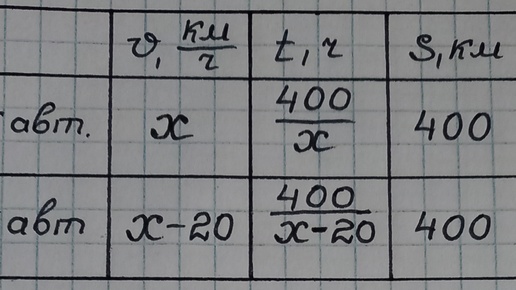 υ, км/ч t, ч S, км
авт. x 400/x 400
авт x-20 400/x-20 400